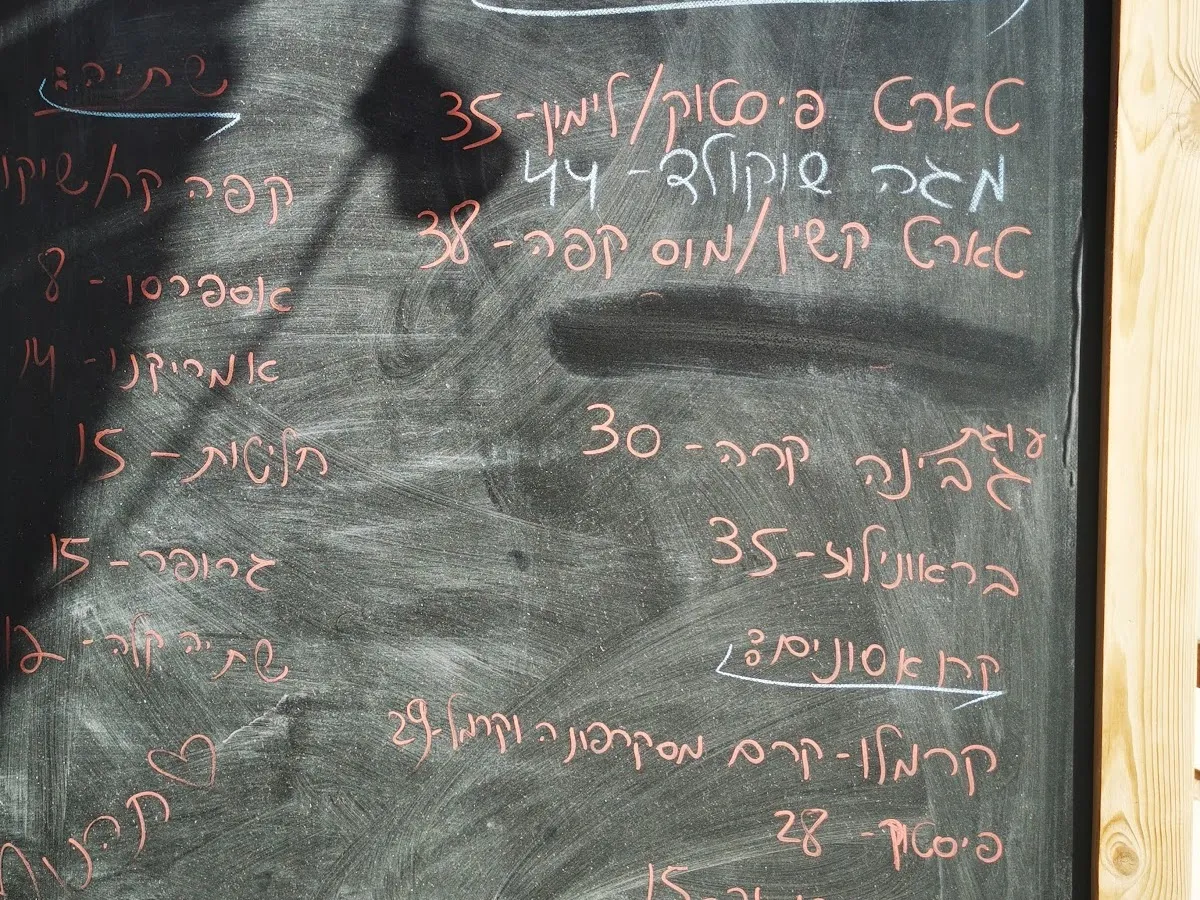 טארט פיסטוק/לימון - 35
מגה שוקולד - 44
טארט קשיו/מוס קפה - 38
עוגת
גבינה קרה - 30
בראונילוז - 35
קרואסונים:
קרמלו - קרם מסקרפונה וקרמל - 29
פיסטוק - 28
15
שתיה:
קפה קר/שיקו
אספרסו - 8
אמריקנו - 14
חליטות - 15
גרופר - 15
שתיה קלה - 12